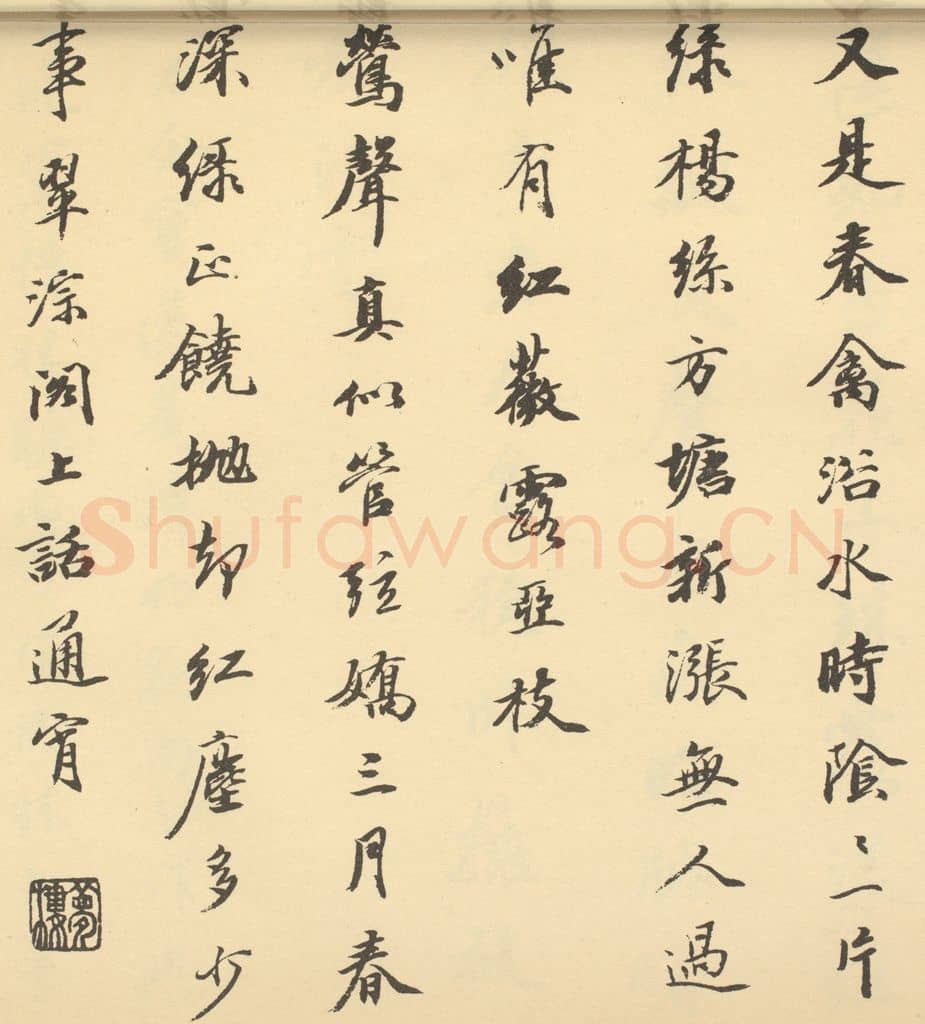 又是春禽浴水時陰〻一片
綠楊絲方塘新漲無人過
唯有紅薇露亞枝
鶯聲真似管弦嬌三月春
深綠正饒拋却紅塵多少
事翠淙閣上話通宵
夢樓
Shufawang.CN